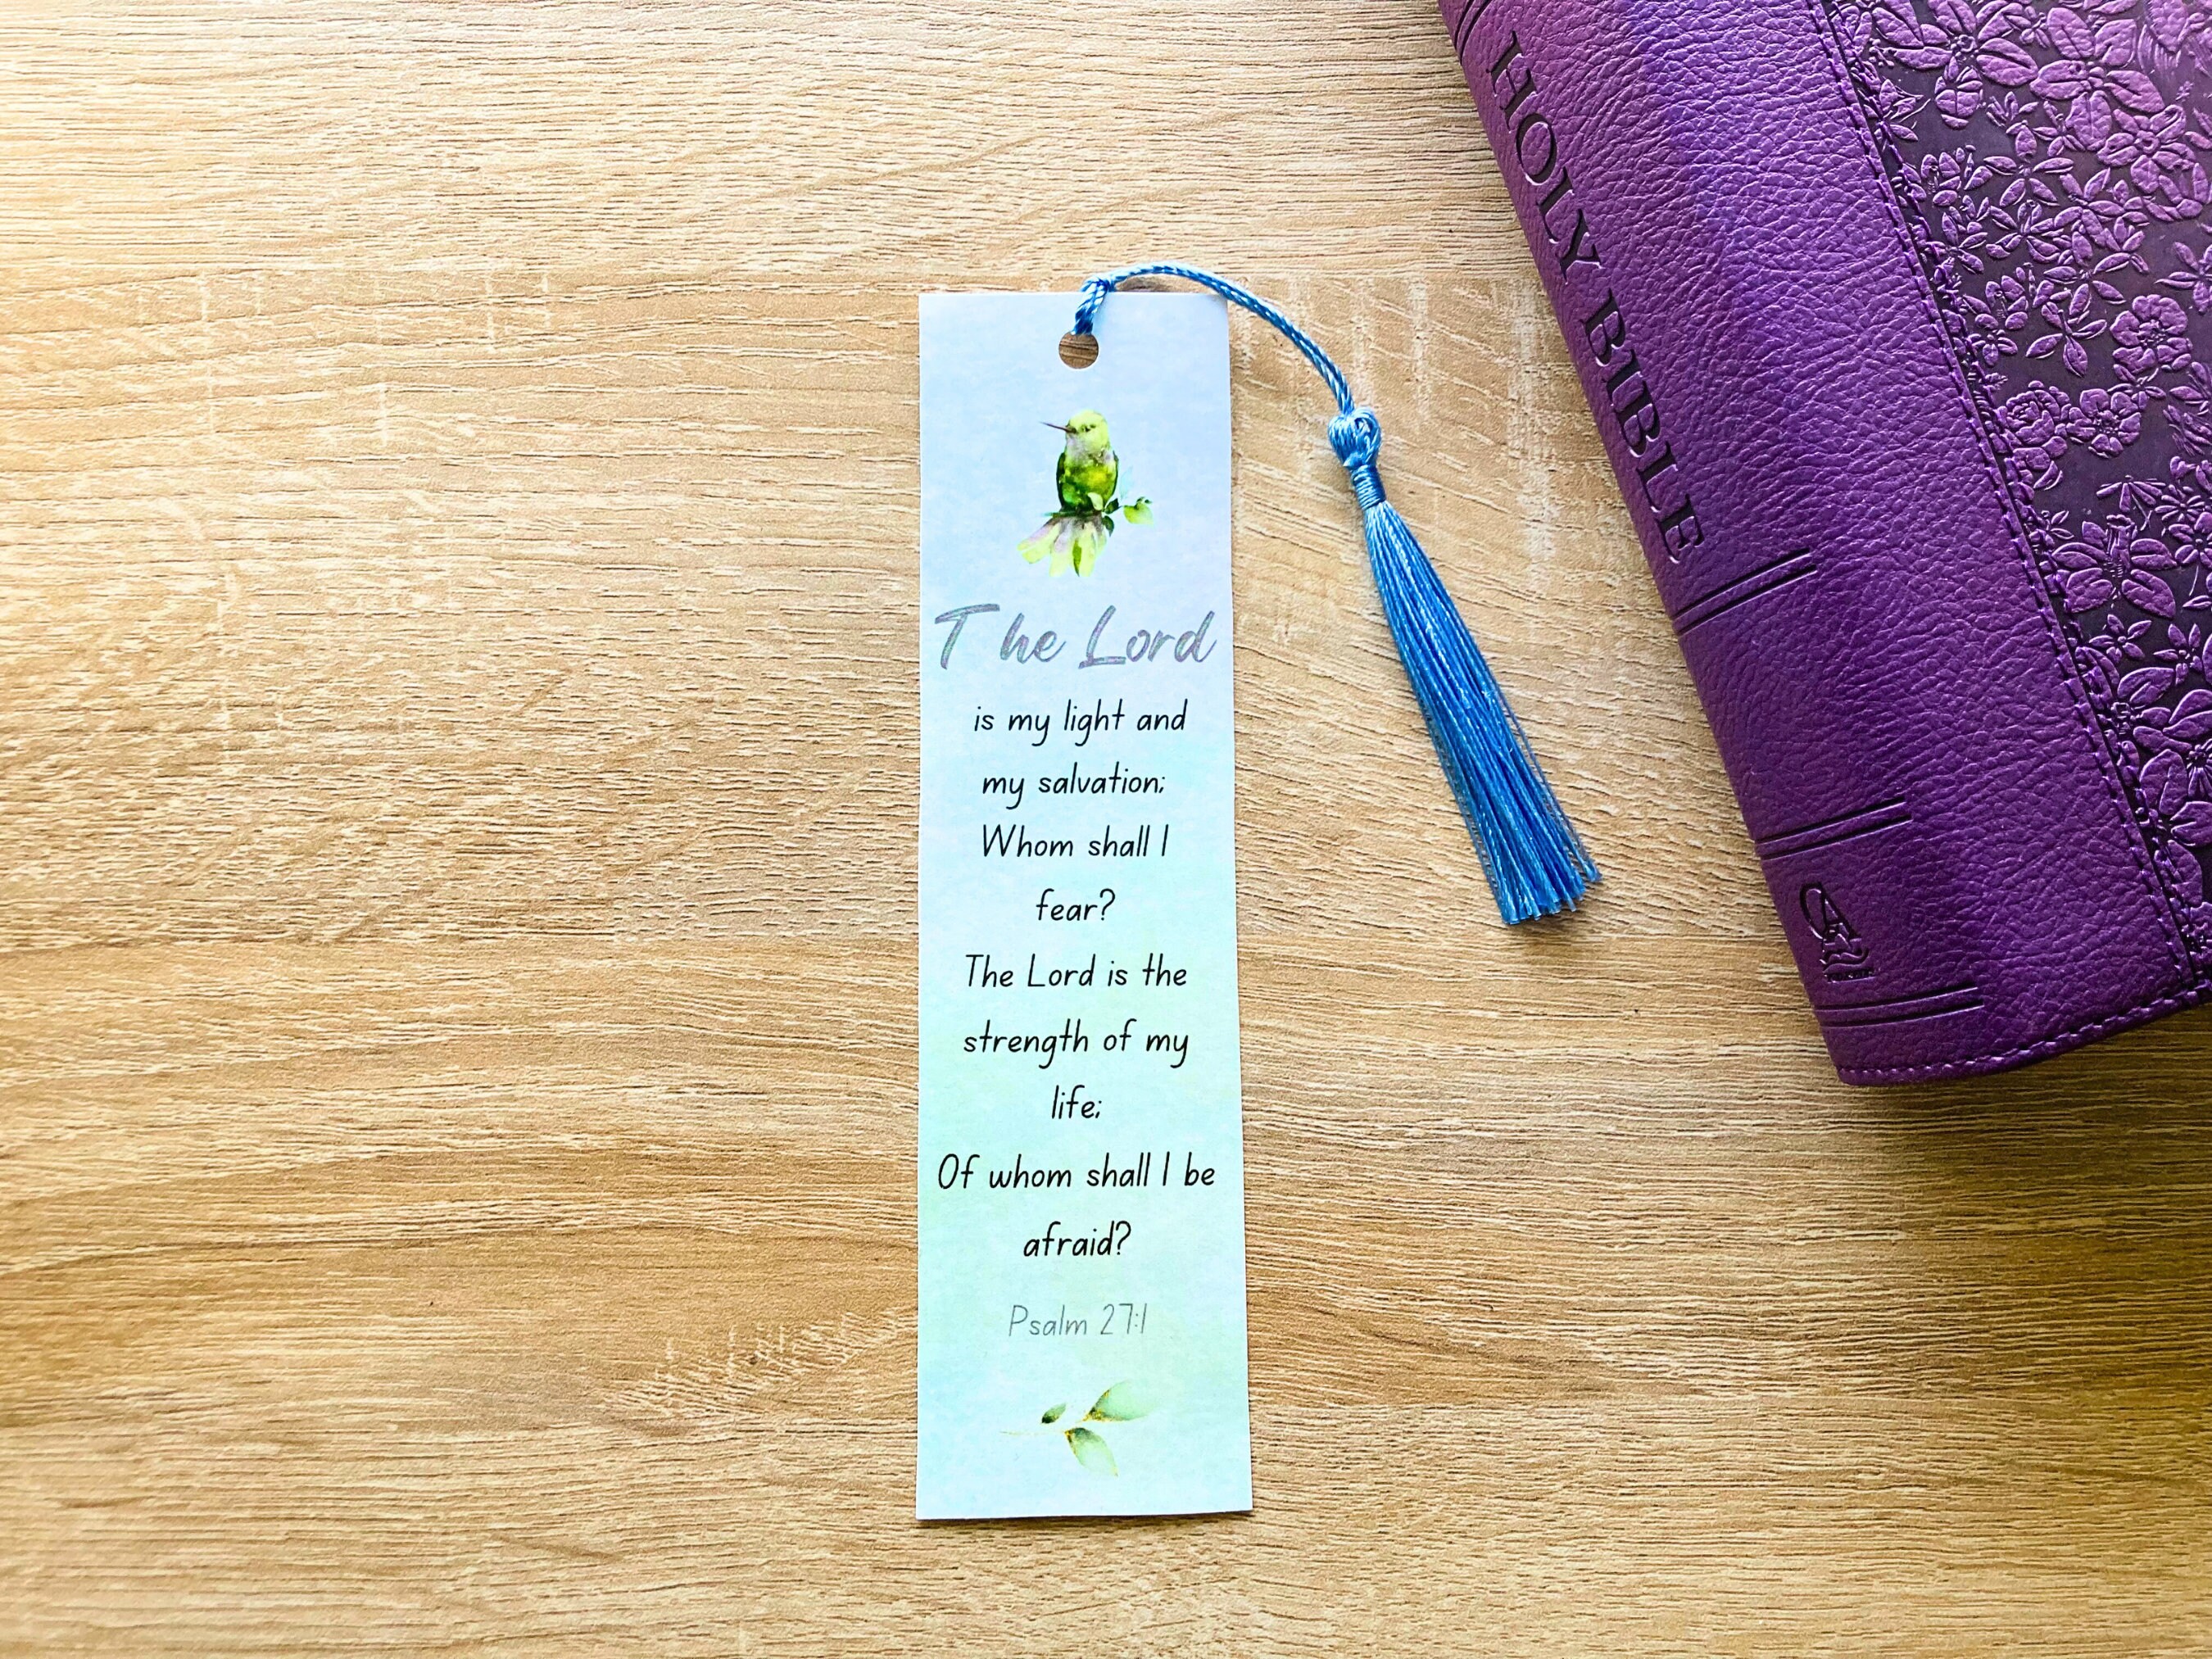 The Lord
is my light and
my salvation;
Whom shall I
fear?
The Lord is the
strength of my
life;
Of whom shall I be
afraid?
Psalm 27:1
HOLY BIBLE